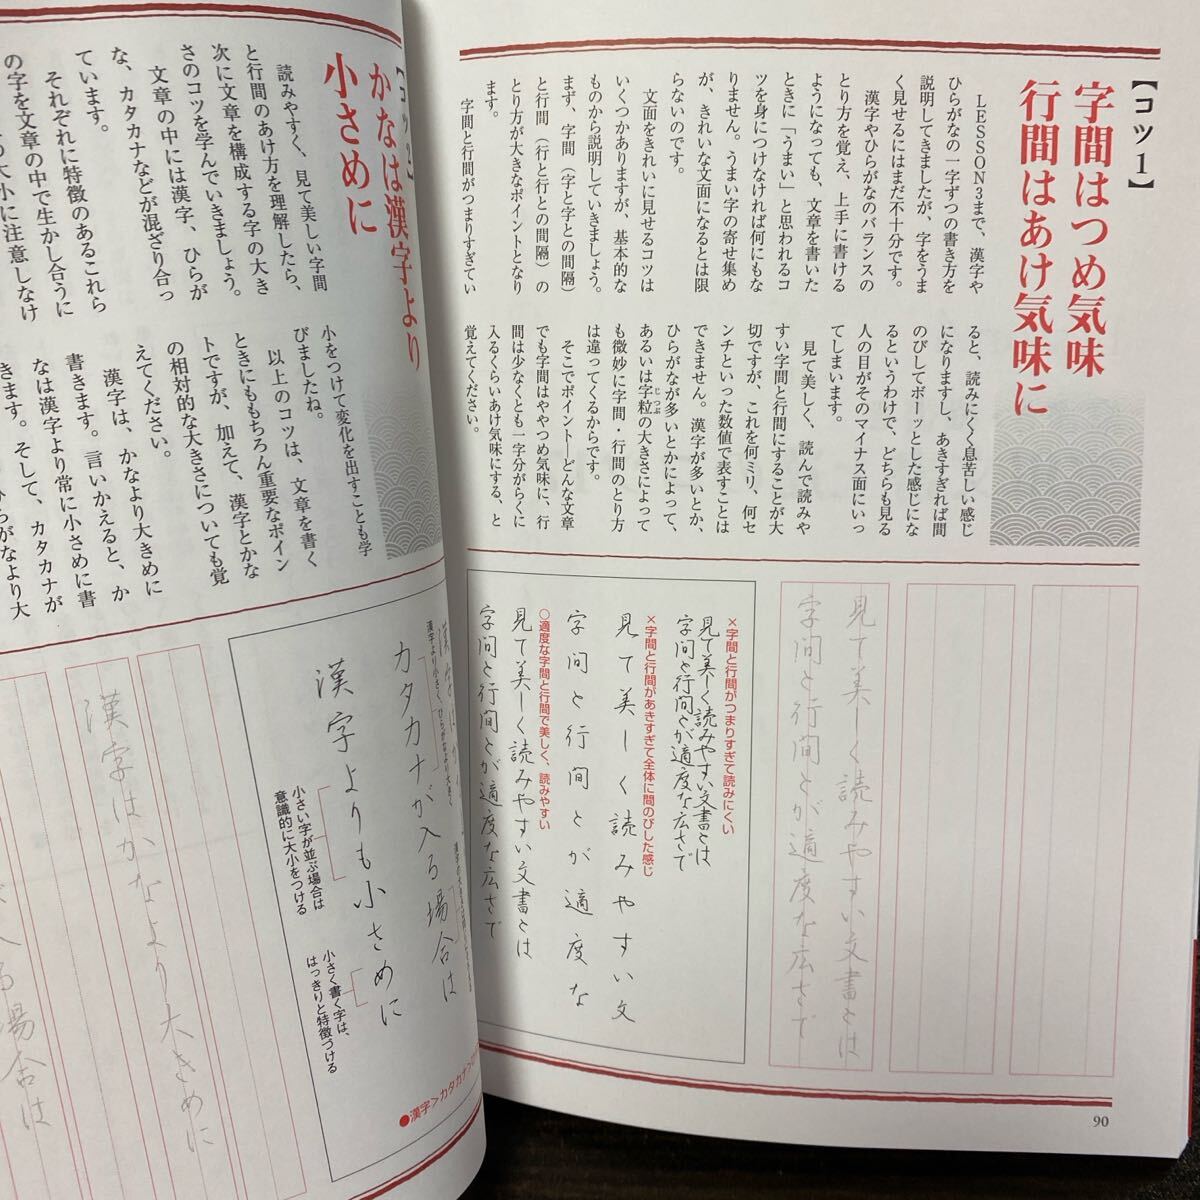 【コツ1】
字間はつめ気味
行間はあけ気味に
LESSON3まで、漢字や
ひらがなの一字ずつの書き方を
説明してきましたが、字をうま
く見せるにはまだ不十分です。
漢字やひらがなのバランスの
とり方を覚え、上手に書ける
ようになっても、文章を書いた
ときに「うまい」と思われるコ
ツを身につけなければ何にもな
りません。うまい字の寄せ集め
が、きれいな文面になるとは限
らないのです。
文面をきれいに見せるコツは
いくつかありますが、基本的な
ものから説明していきましょう。
まず、字間（字と字との間隔）
と行間（行と行との間隔）の
とり方が大きなポイントとなり
ます。
字間と行間がつまりすぎてい
ると、読みにくく息苦しい感じ
になりますし、あきすぎれば間
のびしてボーッとした感じにな
るというわけで、どちらも見る
人の目がそのマイナス面にいっ
てしまいます。
見て美しく、読んで読みや
すい字間と行間にすることが大
切ですが、これを何ミリ、何セ
ンチといった数値で表すことは
できません。漢字が多いとか、
ひらがなが多いとかによって、
あるいは字粒の大きさによって
じつぶ
も微妙に字間・行間のとり方
は違ってくるからです。
そこでポイント―どんな文章
でも字間はややつめ気味に、行
間は少なくとも一字分がらくに
入るくらいあけ気味にする、と
覚えてください。
見て美しく読みやすい文書とは
字間と行間とが適度な広さで
×字間と行間がつまりすぎて読みにくい
見て美しく読みやすい文書とは
字間と行間とが適度な広さで
×字間と行間があきすぎて全体に間のびした感じ
見て美しく読みやすい文
字間と行間とが適度な
○適度な字間と行間で美しく、読みやすい
見て美しく読みやすい文書とは
字間と行間とが適度な広さで
90
かなは漢字より
小さめに
読みやすく、見て美しい字間
と行間のあけ方を理解したら、
次に文章を構成する字の大き
さのコツを学んでいきましょう。
文章の中には漢字、ひらが
な、カタカナなどが混ざり合っ
ています。
それぞれに特徴のあるこれら
の字を文章の中で生かし合うに
大小に注意しなけ
小をつけて変化を出すことも学
びましたね。
以上のコツは、文章を書く
ときにももちろん重要なポイン
トですが、加えて、漢字とかな
の相対的な大きさについても覚
えてください。
漢字は、かなより大きめに
書きます。言いかえると、か
なは漢字より常に小さめに書
きます。そして、カタカナが
らがなより大
漢字より小さく、ひらがなより大きく
カタカナが入る場合は
漢字よりも小さめに
小さい字が並ぶ場合は
意識的に大小をつける
小さく書く字は、
はっきりと特徴づける
●漢字＞カタカナ＞
漢字はかなより大きめに
入る場合は